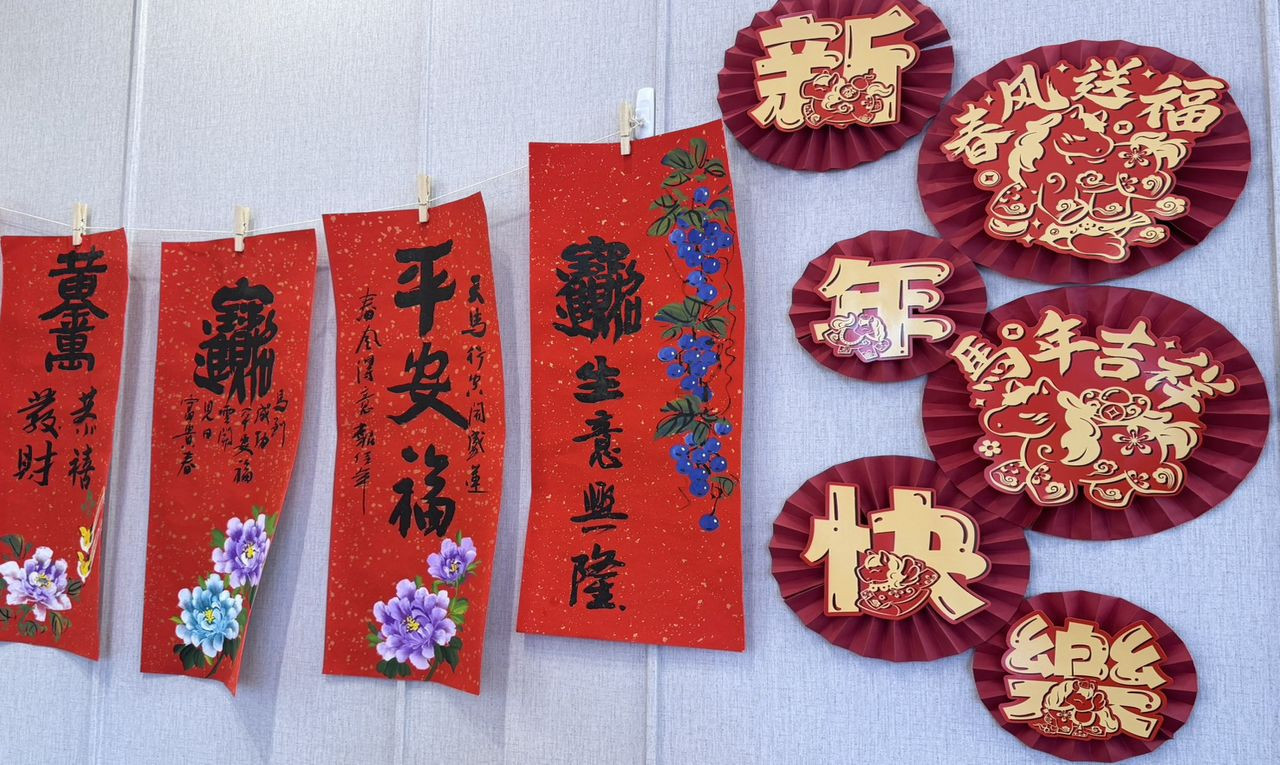 黃金萬
恭禧
發財
招財進寶
馬到
成功
平安福
雲開
見日
富貴春
天馬行空開盛運
平安福
春風得意報佳年
招財進寶
生意興隆
新
年
快
樂
春風送福
馬年吉祥